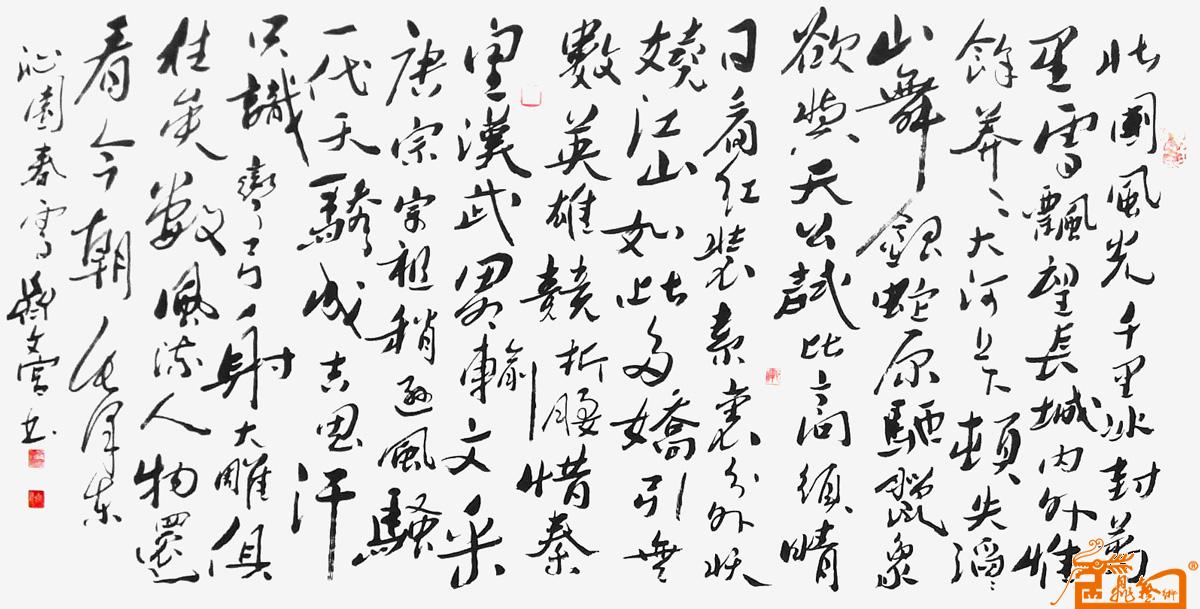 北國風光千里冰封萬
里雪飄望長城内外惟
餘莽〻大河上下頓失滔〻
山舞銀蛇原馳蠟象
欲與天公試比高須晴
日看紅裝素裹分外妖
嬈江山如此多嬌引無
數英雄競折腰惜秦
皇漢武畧輸文采
唐宗宋祖稍遜風騷
一代天驕成吉思汗
只識彎弓射大雕俱
往矣數風流人物還
看今朝毛澤東
沁園春雪文書